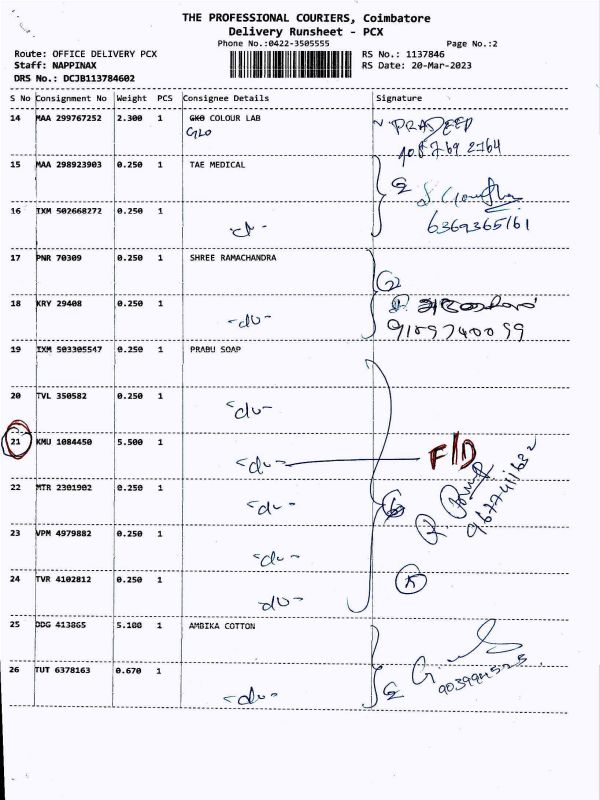 THE PROFESSIONAL COURIERS, Coimbatore
Delivery Runsheet - PCX
Phone No.:0422-3505555 Page No.:2
Route: OFFICE DELIVERY PCX RS No.: 1137846
Staff: NAPPINAX RS Date: 20-Mar-2023
DRS No.: DCJB113784602
S No Consignment No Weight PCS Consignee Details Signature
14 MAA 299767252 2.300 1 GKO COLOUR LAB PRADEEP
GLO
15 MAA 298923903 0.250 1 TAE MEDICAL
16 IXM 502668272 0.250 1 -du- 6369365161
17 PNR 70309 0.250 1 SHREE RAMACHANDRA
18 KRY 29408 0.250 1 -du-
19 IXM 503305547 0.250 1 PRABU SOAP
20 TVL 350582 0.250 1 -du-
21 KMU 1084450 5.500 1 -du- F/D
22 MTR 2301902 0.250 1 -du- 9677411632
23 VPM 4979882 0.250 1 -du-
24 TVR 4102812 0.250 1 -du- 5
25 DDG 413865 5.100 1 AMBIKA COTTON
26 TUT 6378163 0.670 1 -du-